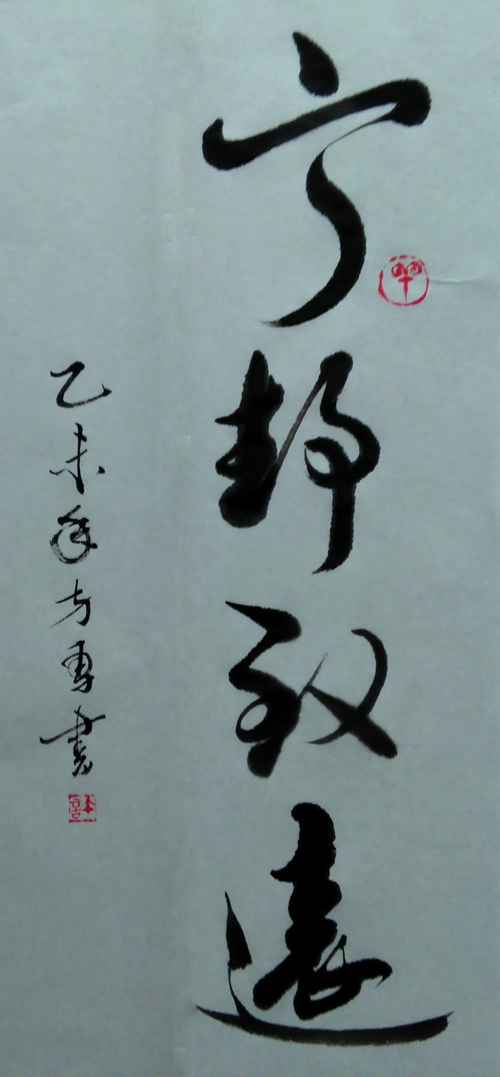 宁静致遠
乙未年方勇書